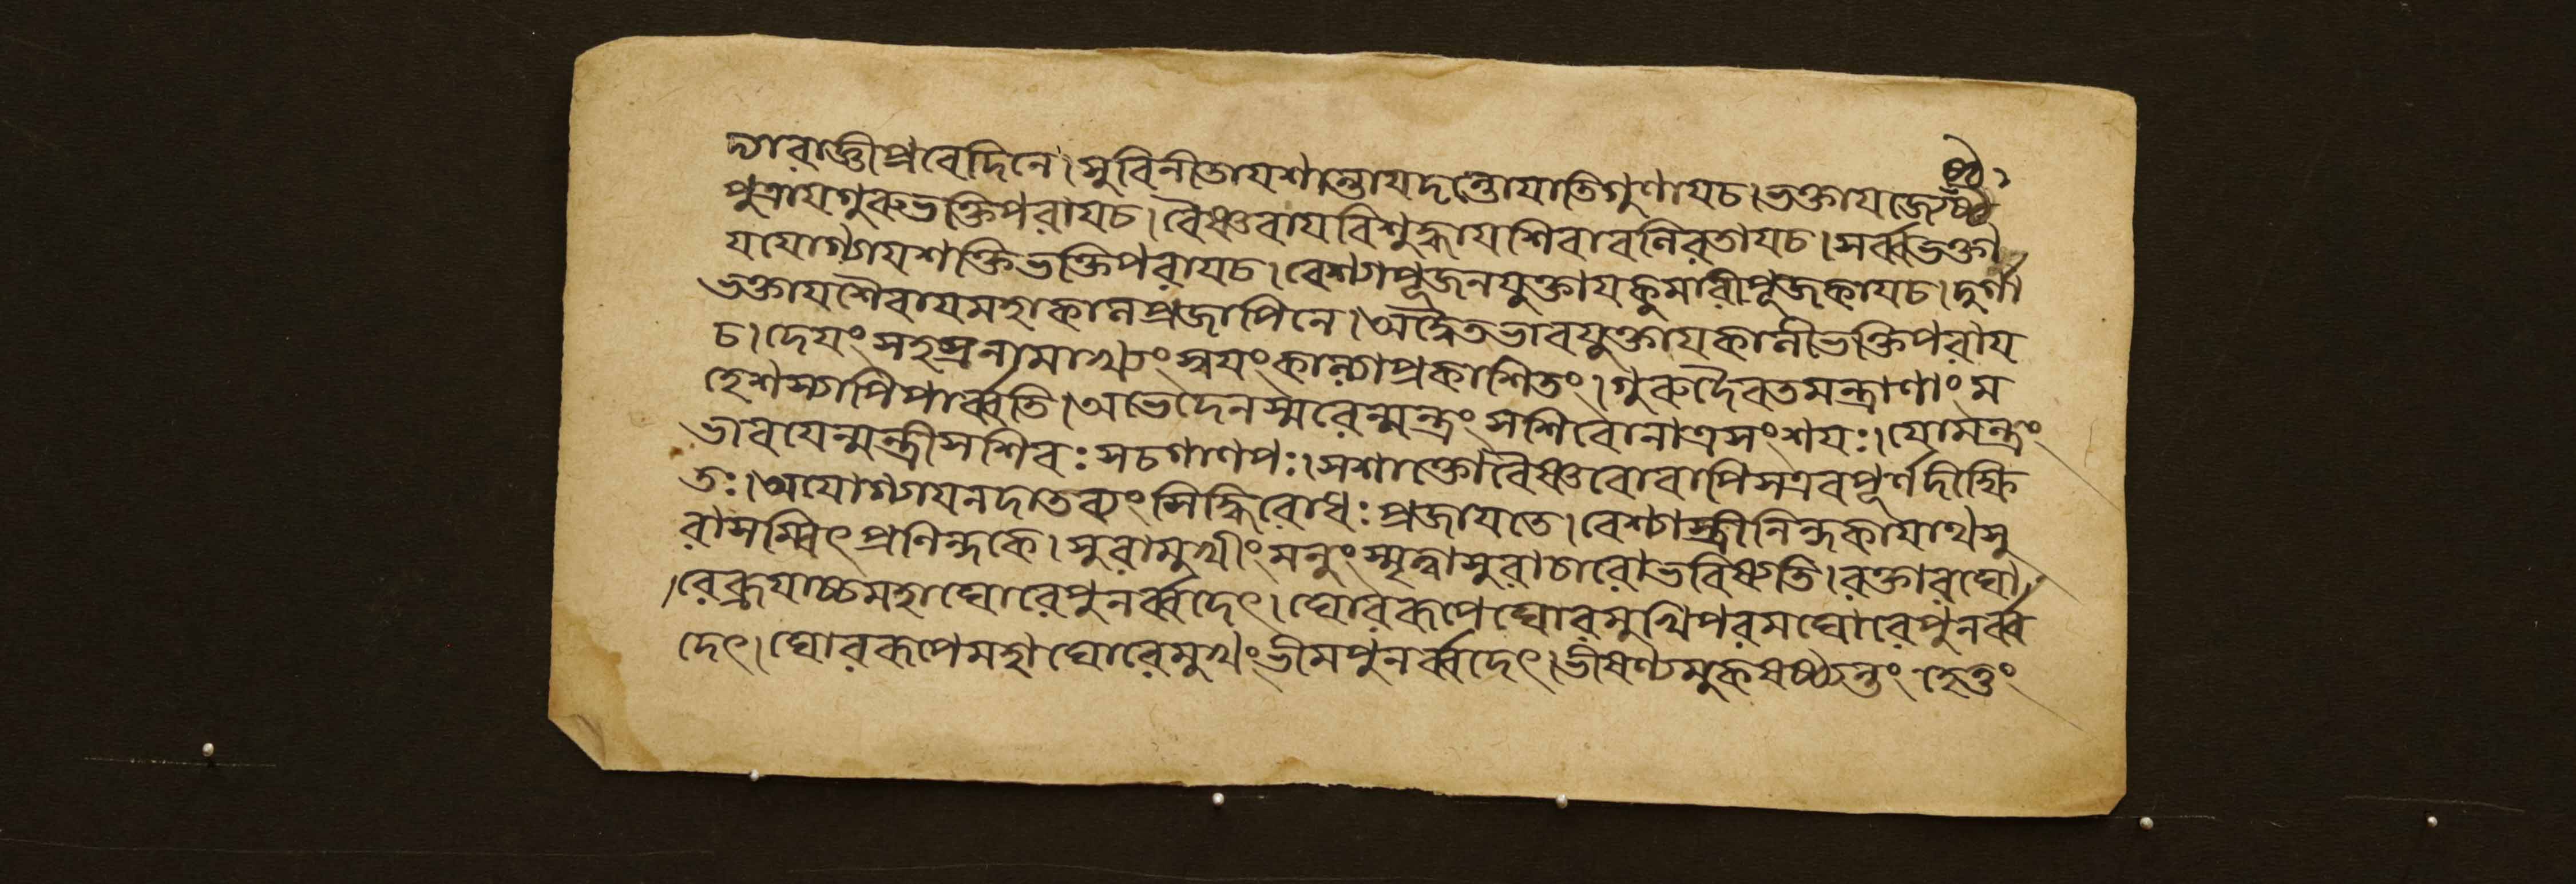 দ্যারাজ্ঞীপ্রবেদিনে।সুবিনীতাযশান্তাযদন্তাযাতিগুণাযচ।ভক্তাযজ্যেষ্ঠ
পুত্রাযগুরুভক্তিপরাযচ।বৈষ্ণবাযবিশুদ্ধাযশিবাবনিরতাযচ।সর্ব্বভক্তা
যযোগ্যাযশক্তিভক্তিপরাযচ।বেশ্যাপূজনযুক্তাযকুমারীপূজকাযচ।দুর্গা
ভক্তাযশৈবাযমহাকালপ্রজাপিনে।অদ্বৈতভাবযুক্তাযকালীভক্তিপরায
চ।দেযংসহস্রনামাখ্যংস্বযংকাল্যাপ্রকাশিতং।গুরুদৈবতমন্ত্রাণাংম
হেশস্যাপিপার্ব্বতি।অভেদেনস্মরেন্মন্ত্রংসশিবোনাত্রসংশযঃ।যোমন্ত্রং
ভাবযেন্মন্ত্রীসশিবঃসচগাণপঃ।সশাক্তোবৈষ্ণবোবাপিসএবপূর্ণদীক্ষি
তঃ।অযোগ্যাযনদাতব্যংসিদ্ধিরোধঃপ্রজাযতে।বেশ্যাস্ত্রীনিন্দকাযাথসু
রাসম্বিৎপ্রনিন্দকে।সুরামুখীংমনুংস্মৃত্বাসুরাচারোভবিষ্যতি।রক্তারঘো
রেব্রূযাচ্চমহাঘোরেপুনর্ব্বদেৎ।ঘোররূপেঘোরমুখিপরমঘোরেপুনর্ব্ব
দেৎ।ঘোররূপেমহাঘোরেমুখংভীমপুনর্ব্বদেৎ।ভীষণ্যমুকষষ্ঠ্যন্তংহেতুং